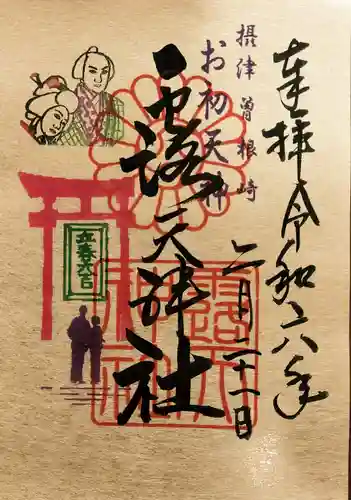 奉拝 令和六年
二月二十一日
摂津 曽根崎
お初天神
露天神社
立春大吉